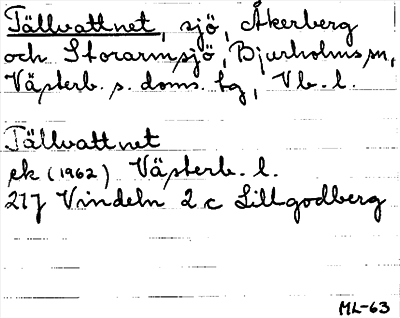 Tällvattnet, sjö, Åkerberg
och Storarmsjö, Bjurholms sn,
Västerb. s. doms. tg, Vb. l.
Tällvattnet
ek (1962) Västerb. l.
21J Vindeln 2 c Lillgodberg
ML-63